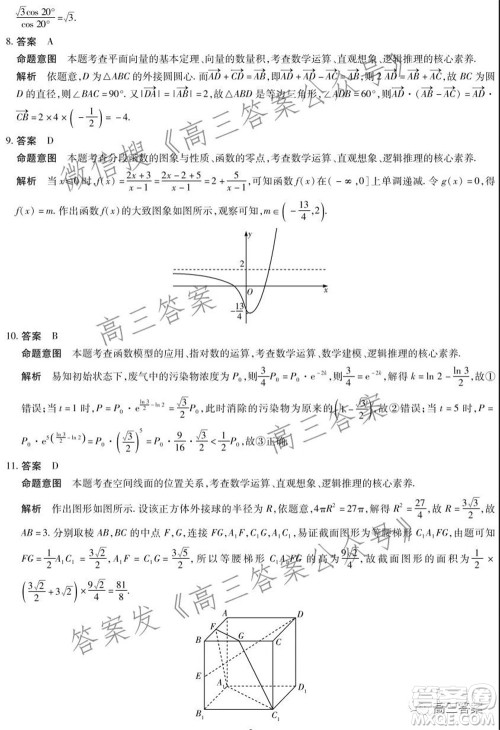 √3cos 20°/cos 20° = √3.
8. 答案 A
命题意图 本题考查平面向量的基本定理、向量的数量积,考查数学运算、直观想象、逻辑推理的核心素养.
解析 依题意,D为△ABC的外接圆圆心.而AD+CD=AB,即AD+AD-AC=AB,则2AD=AB+AC,故BC为圆
D的直径,则∠BAC=90°.又|AD|=|AB|=2,故△ABD是等边三角形,∠ADB=60°,则AD·(AB-AC)=AD·
CB=2×4×(-1/2)=-4.
9. 答案 D
命题意图 本题考查分段函数的图象与性质、函数的零点,考查数学运算、直观想象、逻辑推理的核心素养.
解析 当x≤0时,f(x)=(2x+3)/(x-1)=(2x-2+5)/(x-1)=2+5/(x-1),可知函数f(x)在(-∞,0]上单调递减.令g(x)=0,得
f(x)=m.作出函数f(x)的大致图象如图所示,观察可知,m∈(-13/4,2).
y
2
O
x
-13/4
10. 答案 B
命题意图 本题考查函数模型的应用、指对数的运算,考查数学运算、数学建模、逻辑推理的核心素养.
解析 易知初始状态下,废气中的污染物浓度为P₀,则3/4P₀=P₀·e^(-2k),则3/4=e^(-2k),解得k=ln 2-ln 3/2,故①
错误;当t=1时,P=P₀·e^(ln 3/2-ln 2)=√3/2P₀,此时消除的污染物为原来的(1-√3/2),故②错误;当t=5时,P=
P₀·e^(5(ln 3/2-ln 2))=P₀·(√3/2)⁵=P₀·9/16·√3/2<√3/2P₀,故③正确.
11. 答案 D
命题意图 本题考查空间线面的位置关系,考查数学运算、直观想象、逻辑推理的核心素养.
解析 作出图形如图所示.设该正方体外接球的半径为R,依题意,4πR²=27π,解得R²=27/4,故R=3√3/2,故
AB=3.分别取棱AB,BC的中点F,G,连接FG,A₁F,C₁G,A₁C₁,易证截面图形为等腰梯形C₁A₁FG,由题可知
FG=1/2A₁C₁=3√2/2,A₁F=C₁G=3√5/2,所以等腰梯形C₁A₁FG的高为9√2/4,故截面图形的面积为1/2×
(3√2/2+3√2)×9√2/4=81/8.
A
D
F
B
G
C
A₁
D₁
B₁
C₁
微信搜《高三答案公众号》
高三答案
答案发《高三答案公众号》
高三答案